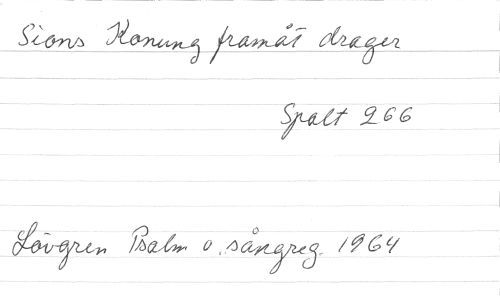 Sions Konung framåt drager
Spalt 266
Lövgren Psalm o. sångreg. 1964